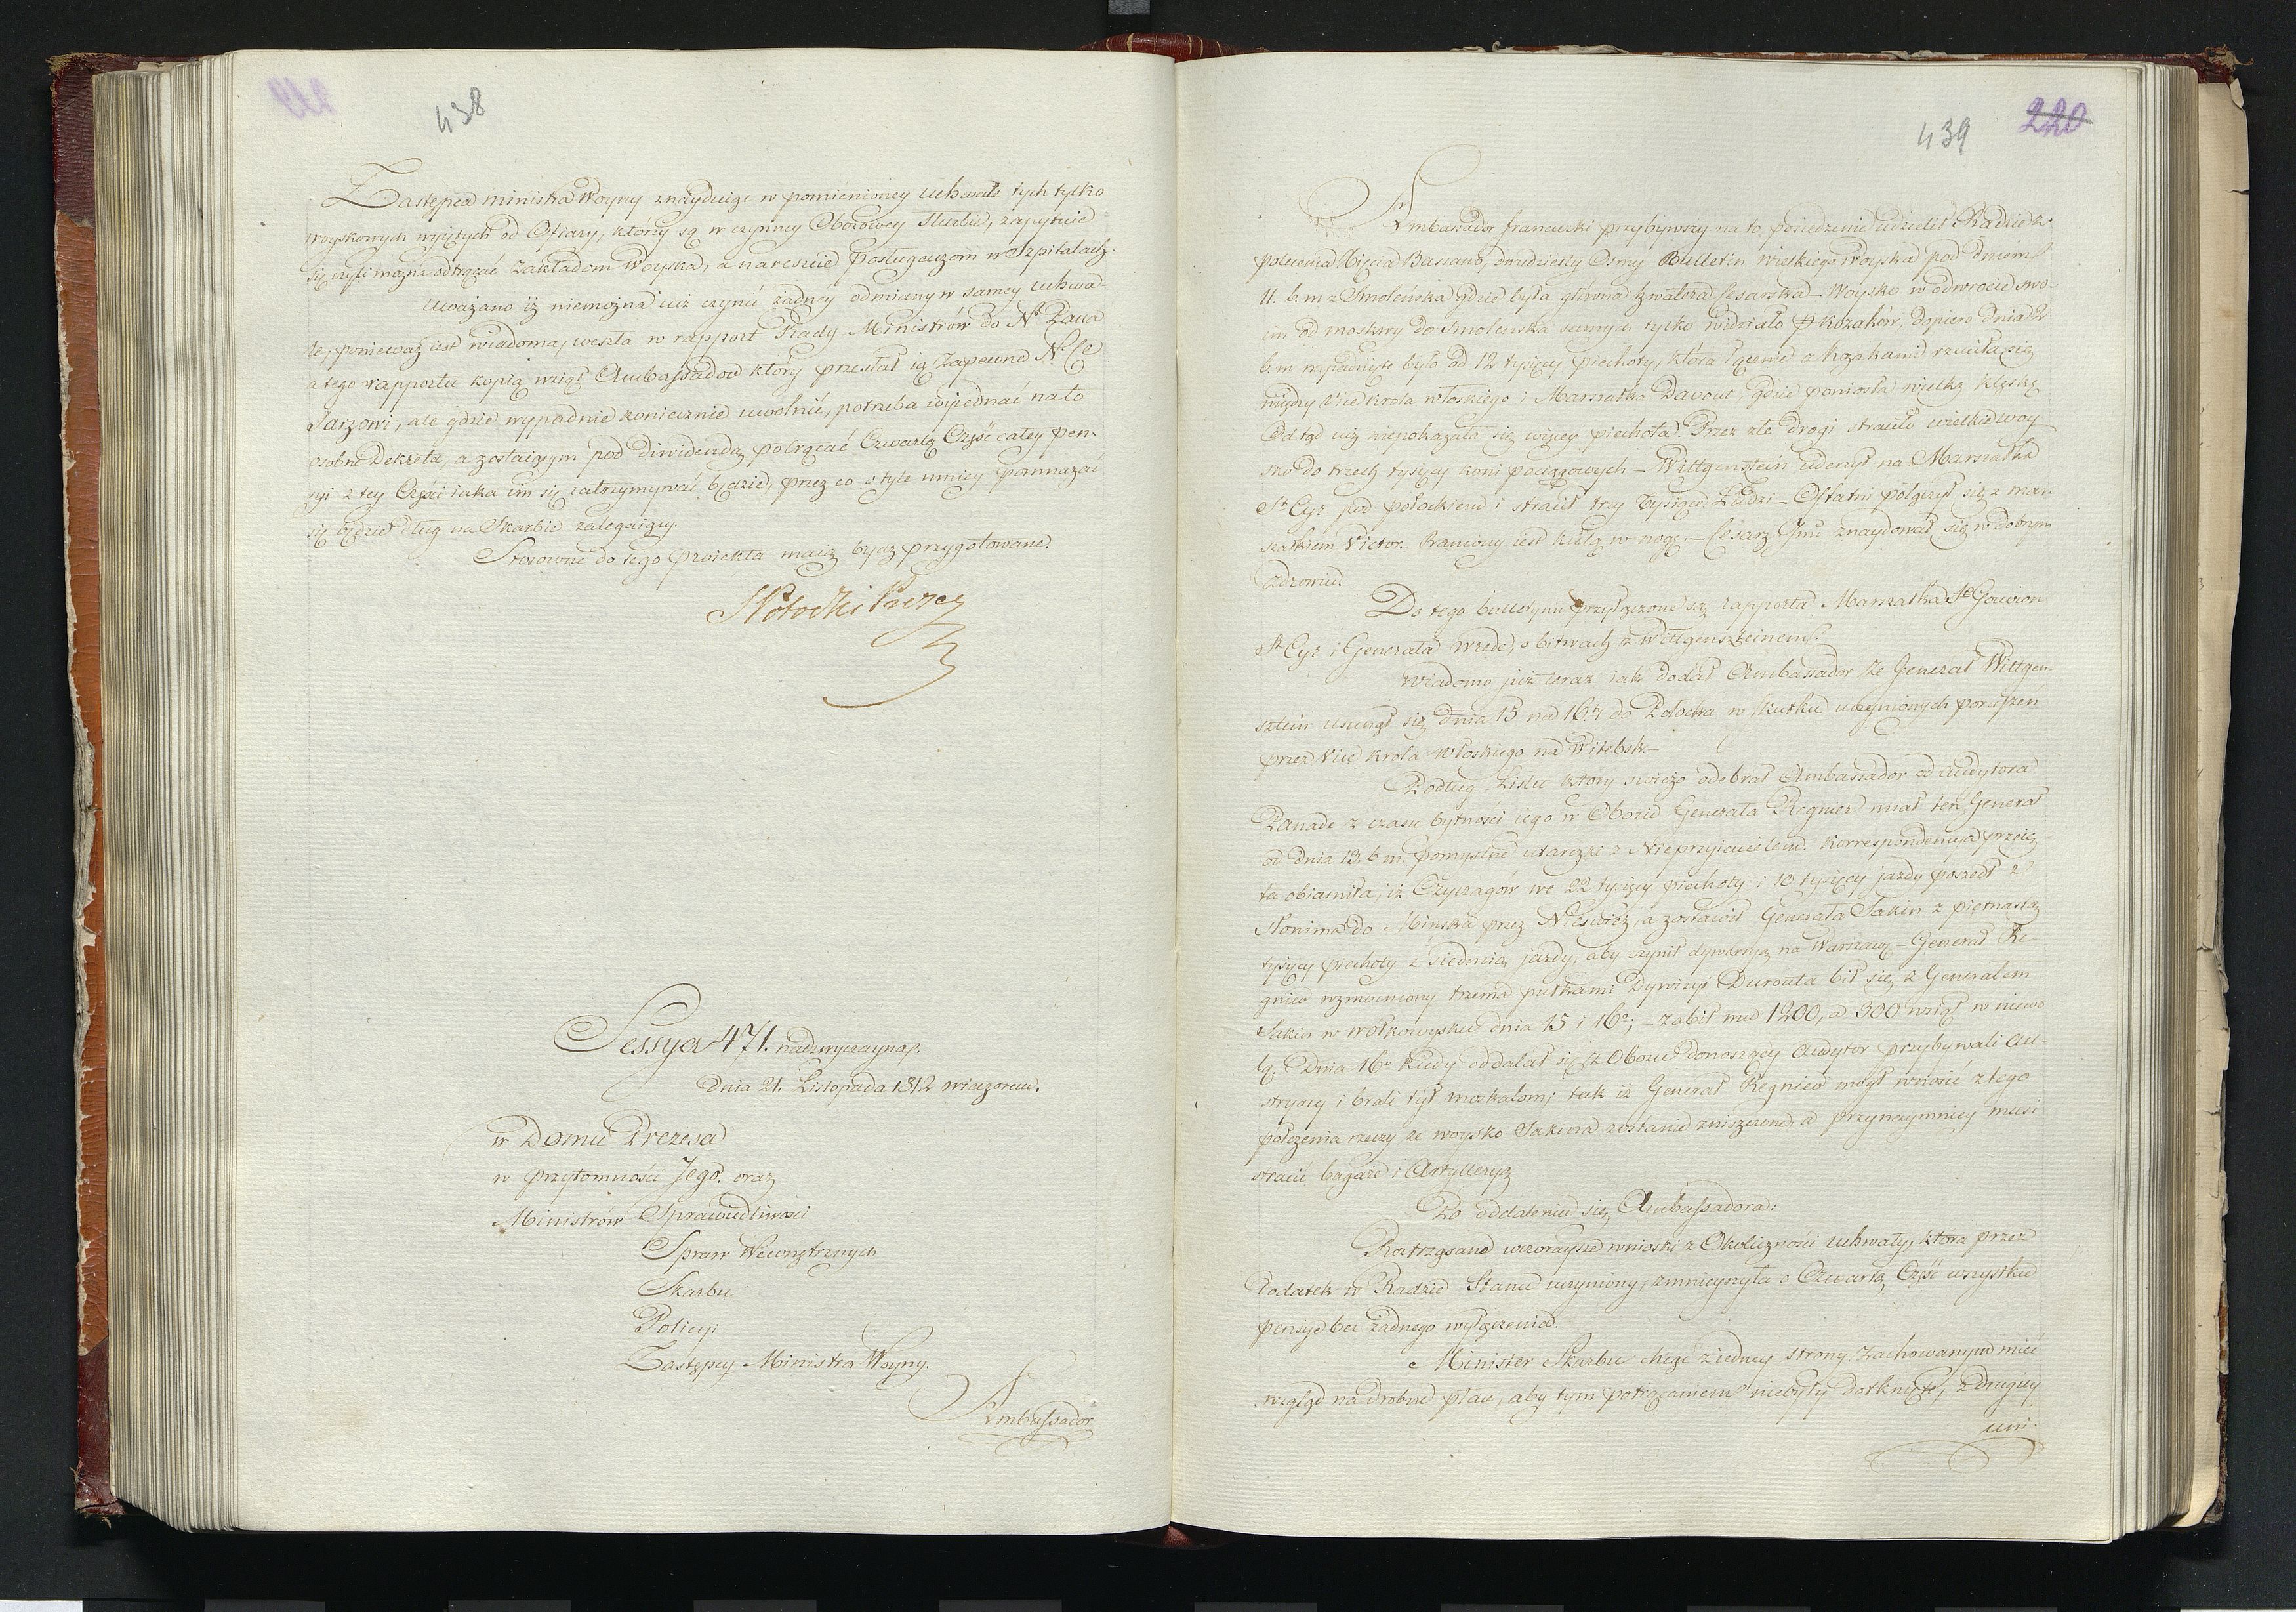 438
Zastępca ministra Woyny znayduiąc w pomienioney uchwale tych tylko
woyskowych wyiętych od Ofiary, którzy są w czynney Obozowey Służbie, zapytuie
się czyli można odtrącać Zakładom Woyska, a nareszcie Posługaczom w Szpitalach.
Uważano iż niemożna iuż czynić żadney odmiany w samey uchwa-
le, ponieważ iest wiadoma, weszła w rapport Rady Ministrów do Nº Pana
a tego rapportu kopią wziął Ambassador który przesłał ią Zapewne Nº Ce
sarzowi, ale gdzie wypadnie koniecznie uwolnić, potrzeba wyiednać na to
osobne Dekreta, a zostaiącym pod Diwidendą potrącać Czwartą Część całey pen-
syi z tey Części iaka im się zatrzymywać będzie, przez co o tyle mniey pomnażać
się będzie dług na Skarbie zalegaiący.
Stosowne do tego proiekta maią bydz przygotowane.
SPotocki Prezes
Sessya 471. nadzwyczayna.
Dnia 21. Listopada 1812 wieczorem.
w Domu Prezesa
w przytomności Jego. oraz
Ministrów Sprawiedliwości
Spraw Wewnętrznych
Skarbu
Policyi
Zastępcy Ministra Woyny.
Ambassador
439 220
Ambassador francuzki przybywszy na to posiedzenie udzielił Radzie z
polecenia Xięcia Bassano, dwudziesty Osmy Bulletin wielkiego Woyska pod dniem
11. b. m z Smoleńska gdzie była główna kwatera Cesarska – Woysko w odwrocie swo-
im od Moskwy do Smoleńska samych tylko widziało Kozaków, dopiero dnia 2
b. m napadnięte było od 12 tysięcy piechoty, która łącznie z Kozakami rzuciła się
między Vice Krola włoskiego i Marszałka Davout, gdzie poniosła wielką klęskę
Odtąd iuż niepokazała się więcey piechota. Przez złe drogi straciło wielkie woy
sko do trzech tysięcy koni pociągowych – Wittgenstein uderzył na Marszałka
St Cyr pod Połockiem i stracił trzy Tysiące Ludzi – Ostatni połączył się z Mar-
szałkiem Victor. Raniony iest kulą w nogę. – Cesarz Jmć znaydował się w dobrym
Zdrowiu.
Do tego bulletynu przyłączone są rapporta Marszałka Gouvion
St Cyr i Generała Wrede, o bitwach z Wittgenszteinem.
Wiadomo już teraz iak dodał Ambassador że Generał Wittgen
sztein usunął się dnia 15 na 16. do Połocka w skutku uczynionych poruszeń
przez Vice Krola włoskiego na Witebsk –
Podług Listu który świeżo odebrał Ambassador od Audytora
Panade z czasu bytności iego w Obozie Generała Regnier miał ten Generał
od dnia 13. b. m. pomyślne utarczki z Nieprzyiacielem. Korrespondencya przeię
ta obiaśniła, iż Czyczagów we 22 tysięcy piechoty i 10 tysięcy jazdy poszedł z
Słonima do Mińska przez Nieświż, a zostawił Generała Sakin z piętnastą
tysięcy piechoty z siedmią jazdy, aby czynił dywersyą na Warszawę – Generał Re-
gnier wzmocniony trzema pułkami Dywizyi Durouta bił się z Generałem
Sakin w Wołkowysku dnia 15 i 16º; – zabił mu 1200, a 300 wziął w niewo
lą. Dnia 16º kiedy oddalał się z Obozu donoszący Audytor przybywali Au-
stryacy i brali tył moskalom, tak iż Generał Regnier mógł wnosić z tego
położenia rzeczy że woysko Sakina zostanie zniszczone, a przynaymniey musi
stracić bagaże i Artylleryą
Po oddaleniu się Ambassadora:
Roztrząsano wczoraysze wnioski z Okoliczności uchwały, która przez
Dodatek w Radzie Stanu uczyniony, zmnieyszyła o Czwartą Część wszystkie
pensye bez żadnego wyłączenia.
Minister Skarbu chcąc z iedney strony Zachowanym mieć
wzgląd na drobne płace, aby tym potrąceniem niebyły dotknięte, z drugiey
uni-